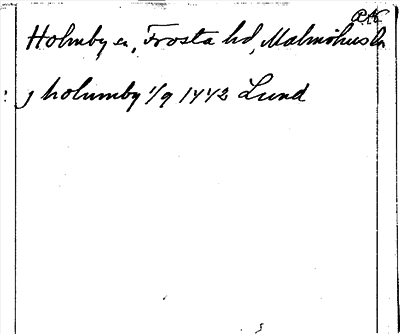 Holmby sn, Frosta hd, Malmöhus ln
j holumby 1/9 1442 Lund